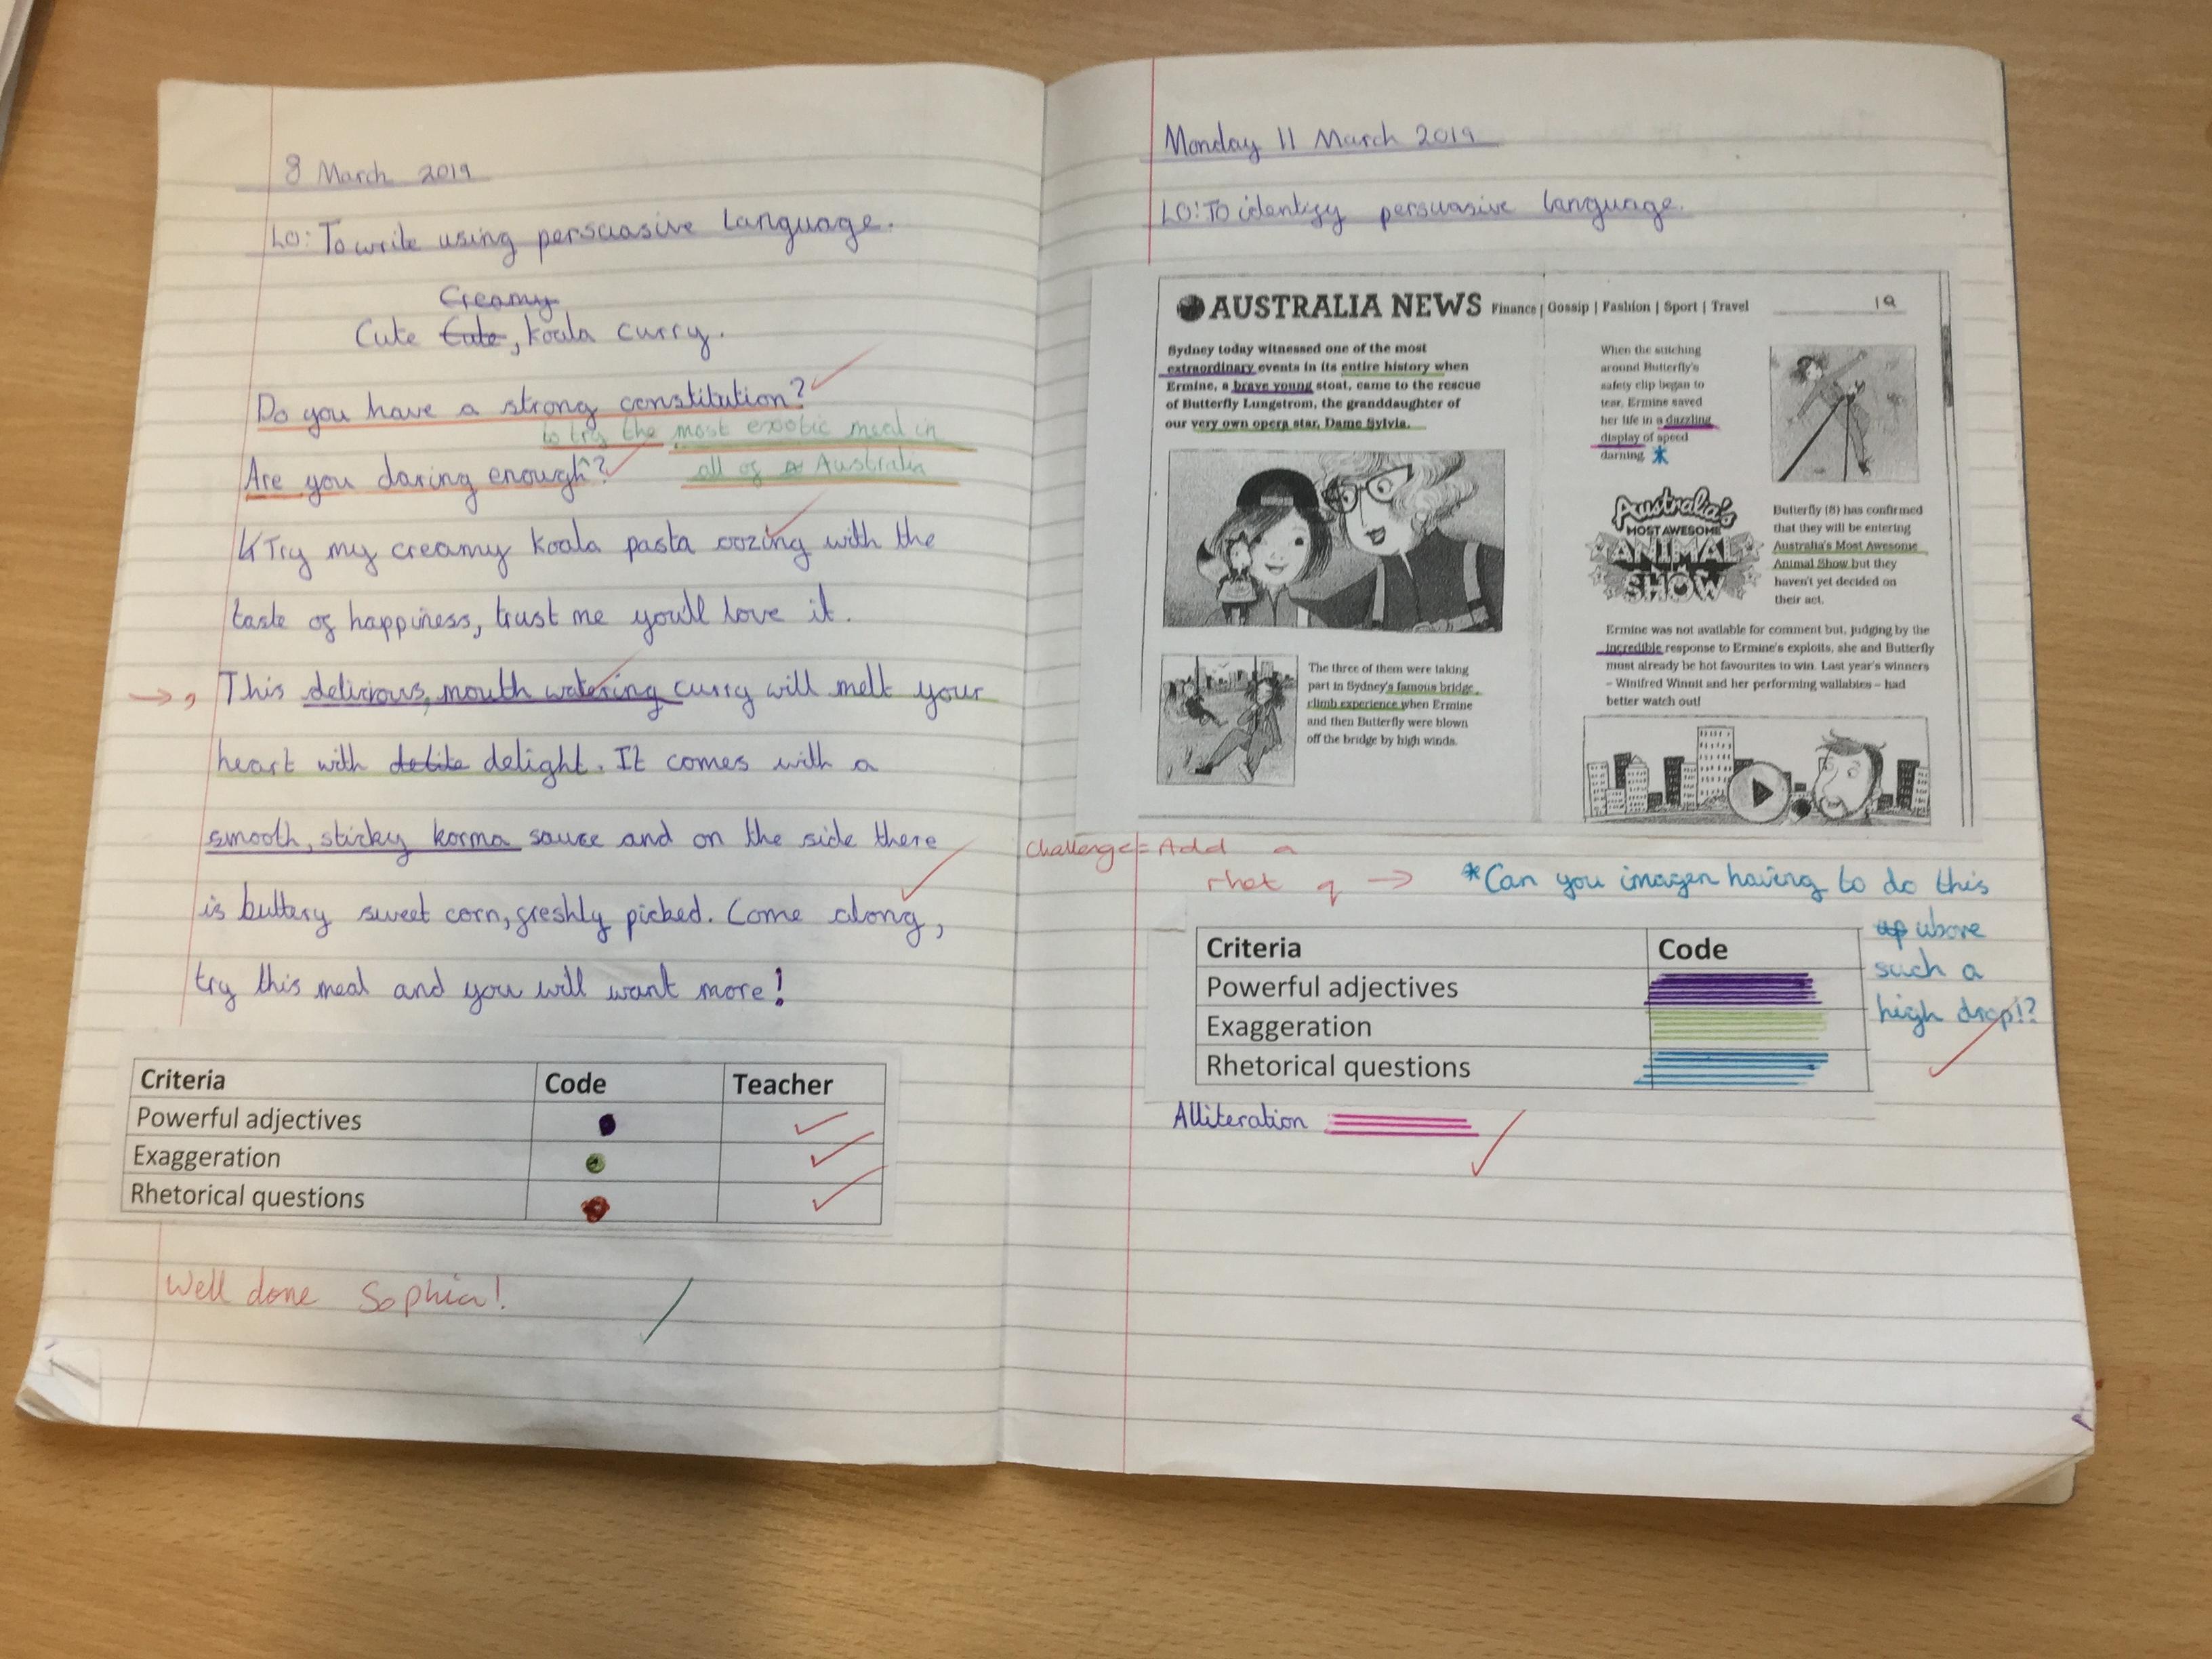 8 March 2019
LO: To write using persuasive language.
Creamy
Cute Cute, koala curry.
Do you have a strong constitution?
to try the most exotic meal in
Are you daring enough^? all of a Australia
Try my creamy koala pasta oozing with the
taste of happiness, trust me you'll love it.
→, This delicious, mouth watering curry will melt your
heart with delite delight. It comes with a
smooth, sticky korma sauce and on the side there
is buttery sweet corn, freshly picked. Come along,
try this meal and you will want more!
Criteria Code Teacher
Powerful adjectives
Exaggeration
Rhetorical questions
Well done Sophia!
Monday 11 March 2019
LO: To identify persuasive language.
AUSTRALIA NEWS Finance | Gossip | Fashion | Sport | Travel
Sydney today witnessed one of the most
extraordinary events in its entire history when
Ermine, a brave young stoat, came to the rescue
of Butterfly Lungstrom, the granddaughter of
our very own opera star, Dame Sylvia.
The three of them were taking
part in Sydney's famous bridge
climb experience when Ermine
and then Butterfly were blown
off the bridge by high winds.
When the stitching
around Butterfly's
safety clip began to
tear, Ermine saved
her life in a dazzling
display of speed
darning. *
Australia's
MOST AWESOME
ANIMAL
SHOW
Butterfly (8) has confirmed
that they will be entering
Australia's Most Awesome
Animal Show but they
haven't yet decided on
their act.
Ermine was not available for comment but, judging by the
incredible response to Ermine's exploits, she and Butterfly
must already be hot favourites to win. Last year's winners
– Winifred Winnit and her performing wallabies – had
better watch out!
Challenge = Add a
rhet q →
*Can you imagen having to do this
up above
such a
high drop!?
Criteria Code
Powerful adjectives
Exaggeration
Rhetorical questions
Alliteration